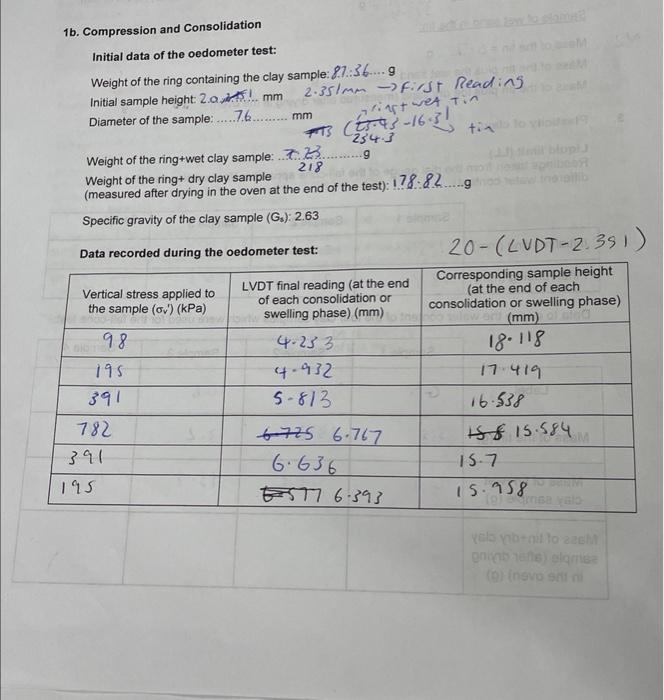 1b. Compression and Consolidation
Initial data of the oedometer test:
Weight of the ring containing the clay sample: 87.36 g
Initial sample height: 20 mm 2.351mm → First Reading
Diameter of the sample: 76 mm ring+wet Tin
-16.3) tin
234.3
Weight of the ring+wet clay sample: g
218
Weight of the ring+ dry clay sample
(measured after drying in the oven at the end of the test): 178.82 g
Specific gravity of the clay sample (Gs): 2.63
20-(LVDT-2.351)
Data recorded during the oedometer test:
Vertical stress applied to the sample (σv') (kPa) LVDT final reading (at the end of each consolidation or swelling phase) (mm) Corresponding sample height (at the end of each consolidation or swelling phase) (mm)
98 4.233 18.118
195 4.932 17.419
391 5.813 16.538
782 6.725 6.767 15.584
391 6.636 15.7
195 6.577 6.393 15.958